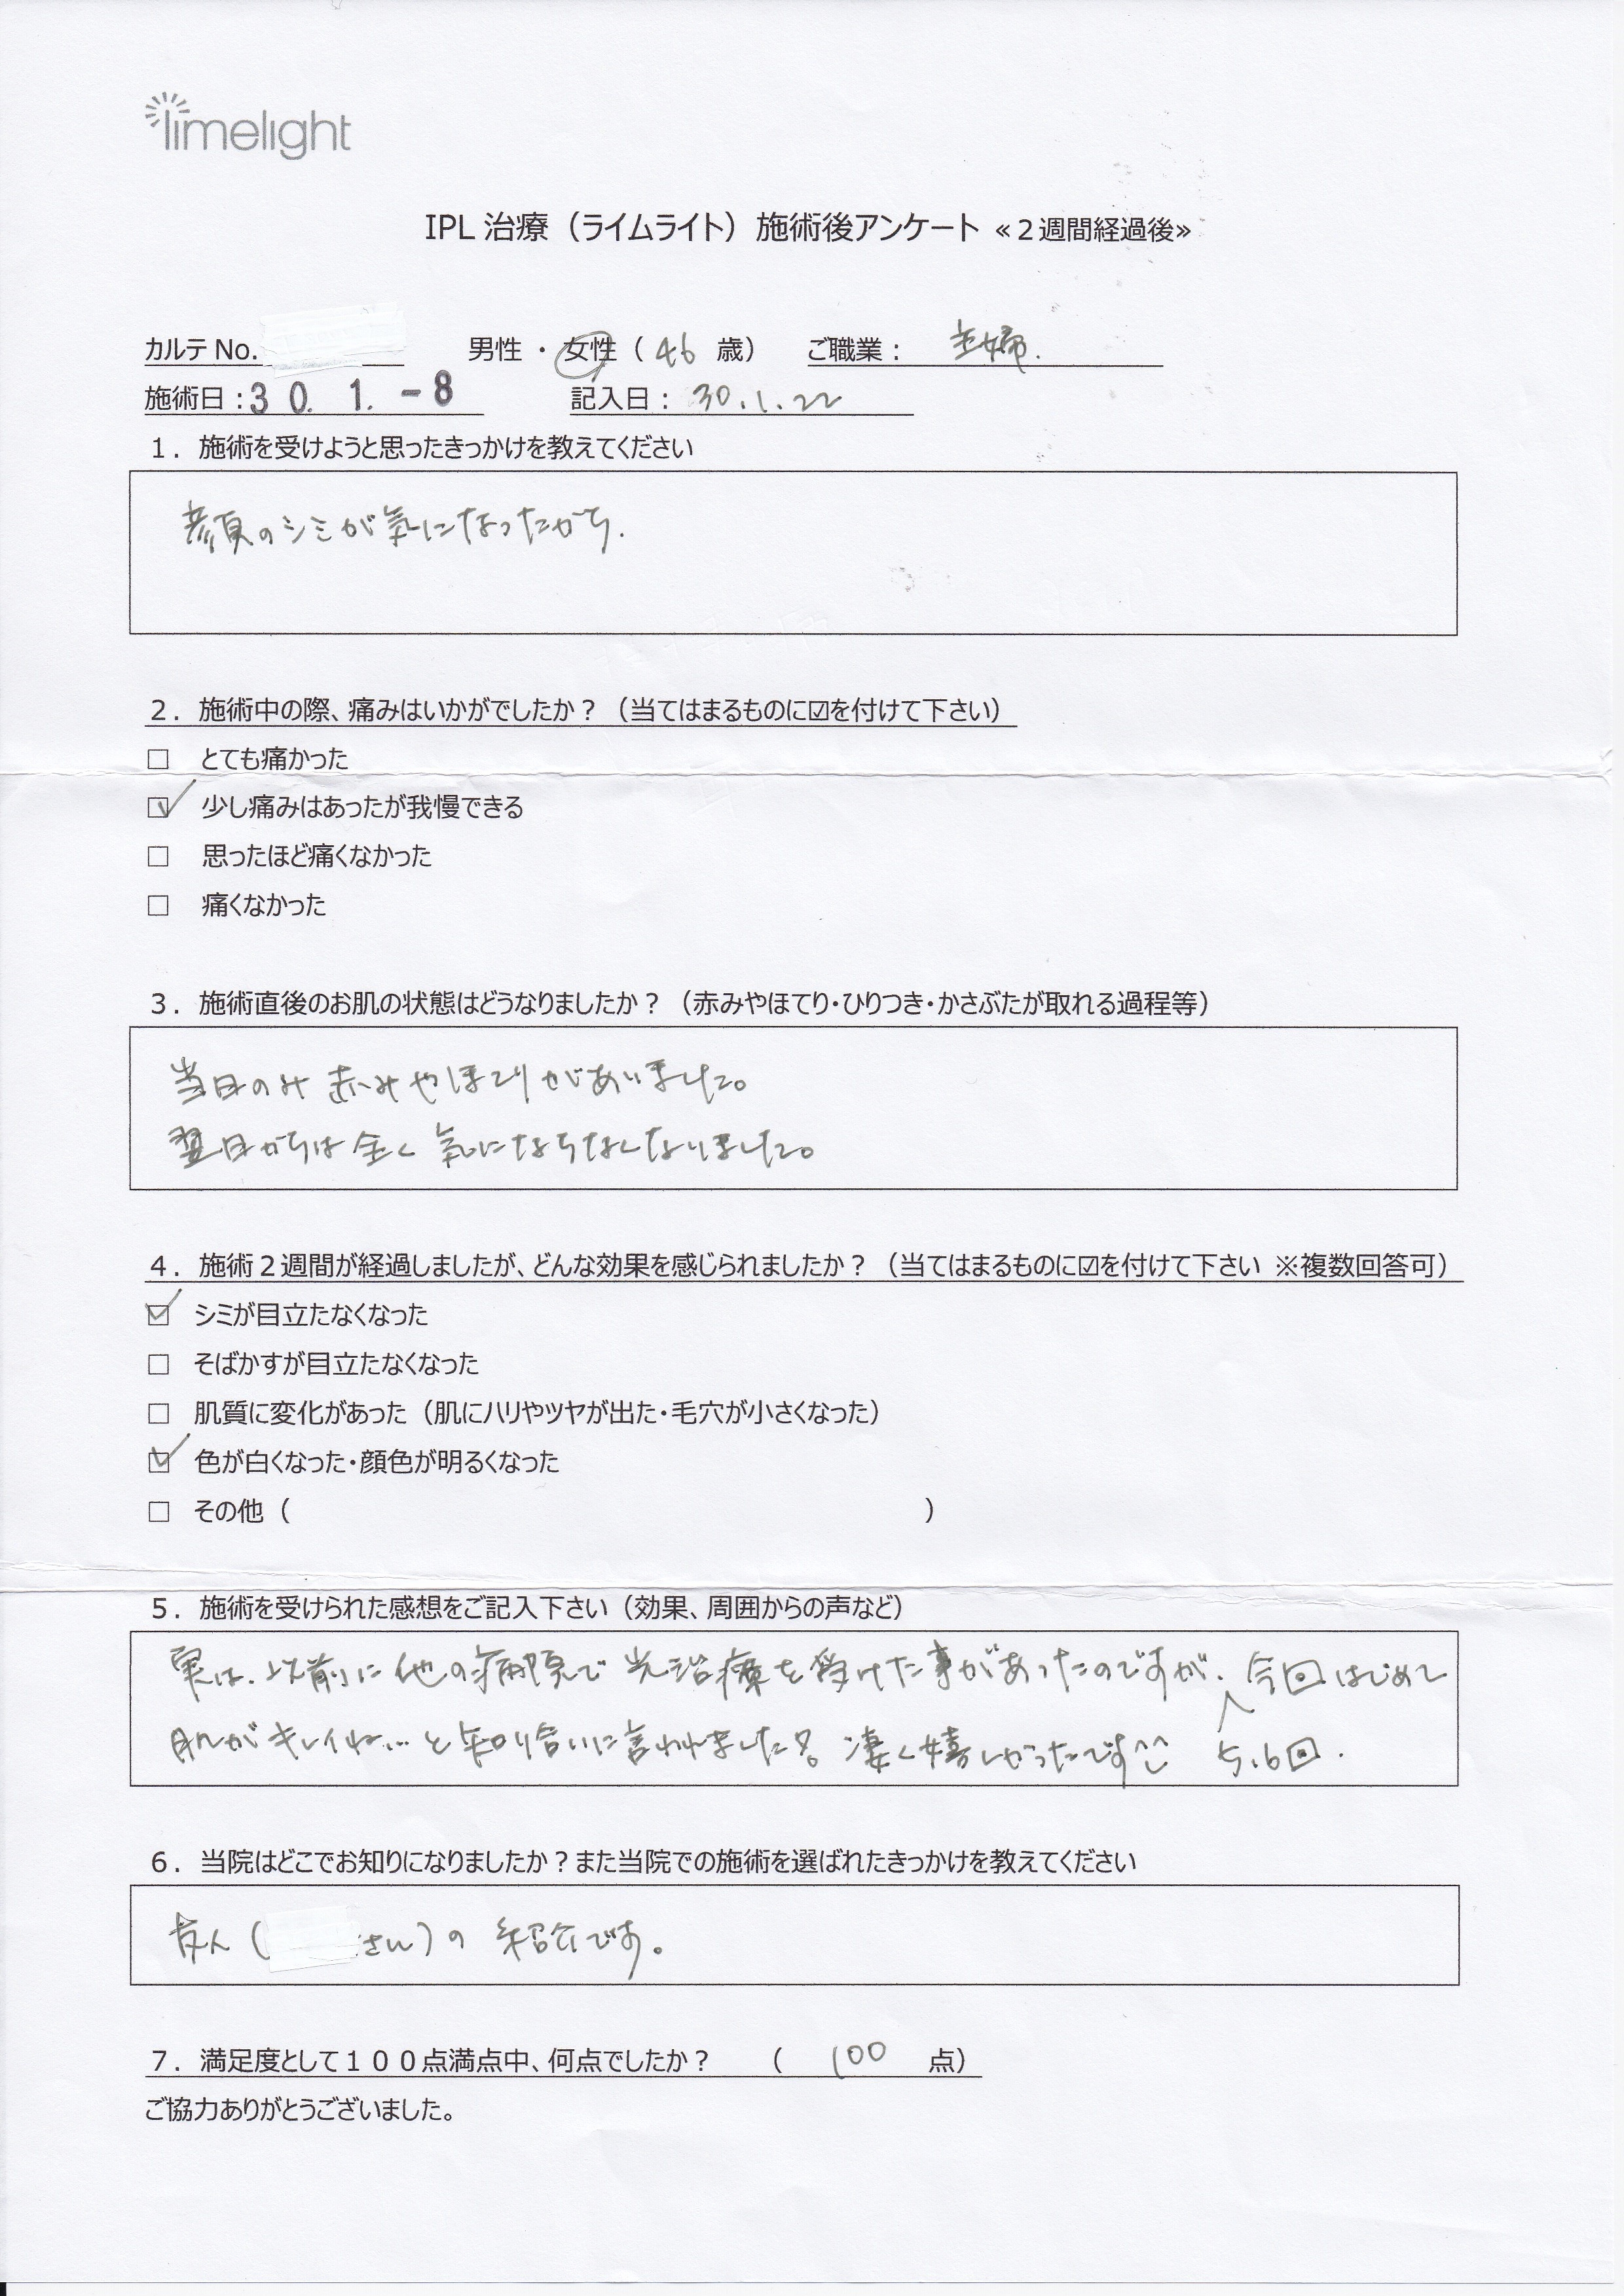 limelight
IPL 治療（ライムライト）施術後アンケート ≪２週間経過後≫
カルテ No. 男性 ・ 女性（ 46 歳） ご職業： 主婦.
施術日：30. 1. -8 記入日： 30.1.22
１．施術を受けようと思ったきっかけを教えてください
顔のシミが気になったから.
２．施術中の際、痛みはいかがでしたか？（当てはまるものに☑を付けて下さい）
☐ とても痛かった
☑ 少し痛みはあったが我慢できる
☐ 思ったほど痛くなかった
☐ 痛くなかった
３．施術直後のお肌の状態はどうなりましたか？（赤みやほてり・ひりつき・かさぶたが取れる過程等）
当日のみ 赤みやほてりがありました。
翌日からは全く気にならなくなりました。
４．施術２週間が経過しましたが、どんな効果を感じられましたか？（当てはまるものに☑を付けて下さい ※複数回答可）
☑ シミが目立たなくなった
☐ そばかすが目立たなくなった
☐ 肌質に変化があった（肌にハリやツヤが出た・毛穴が小さくなった）
☑ 色が白くなった・顔色が明るくなった
☐ その他（ ）
５．施術を受けられた感想をご記入下さい（効果、周囲からの声など）
実は、以前に他の病院で光治療を受けた事があったのですが、今回はじめて
肌がキレイね…と知り合いに言われました!。凄く嬉しかったです^^ 5.6回.
６．当院はどこでお知りになりましたか？また当院での施術を選ばれたきっかけを教えてください
友人（ さん）の 紹介です。
７．満足度として１００点満点中、何点でしたか？ （ 100 点）
ご協力ありがとうございました。